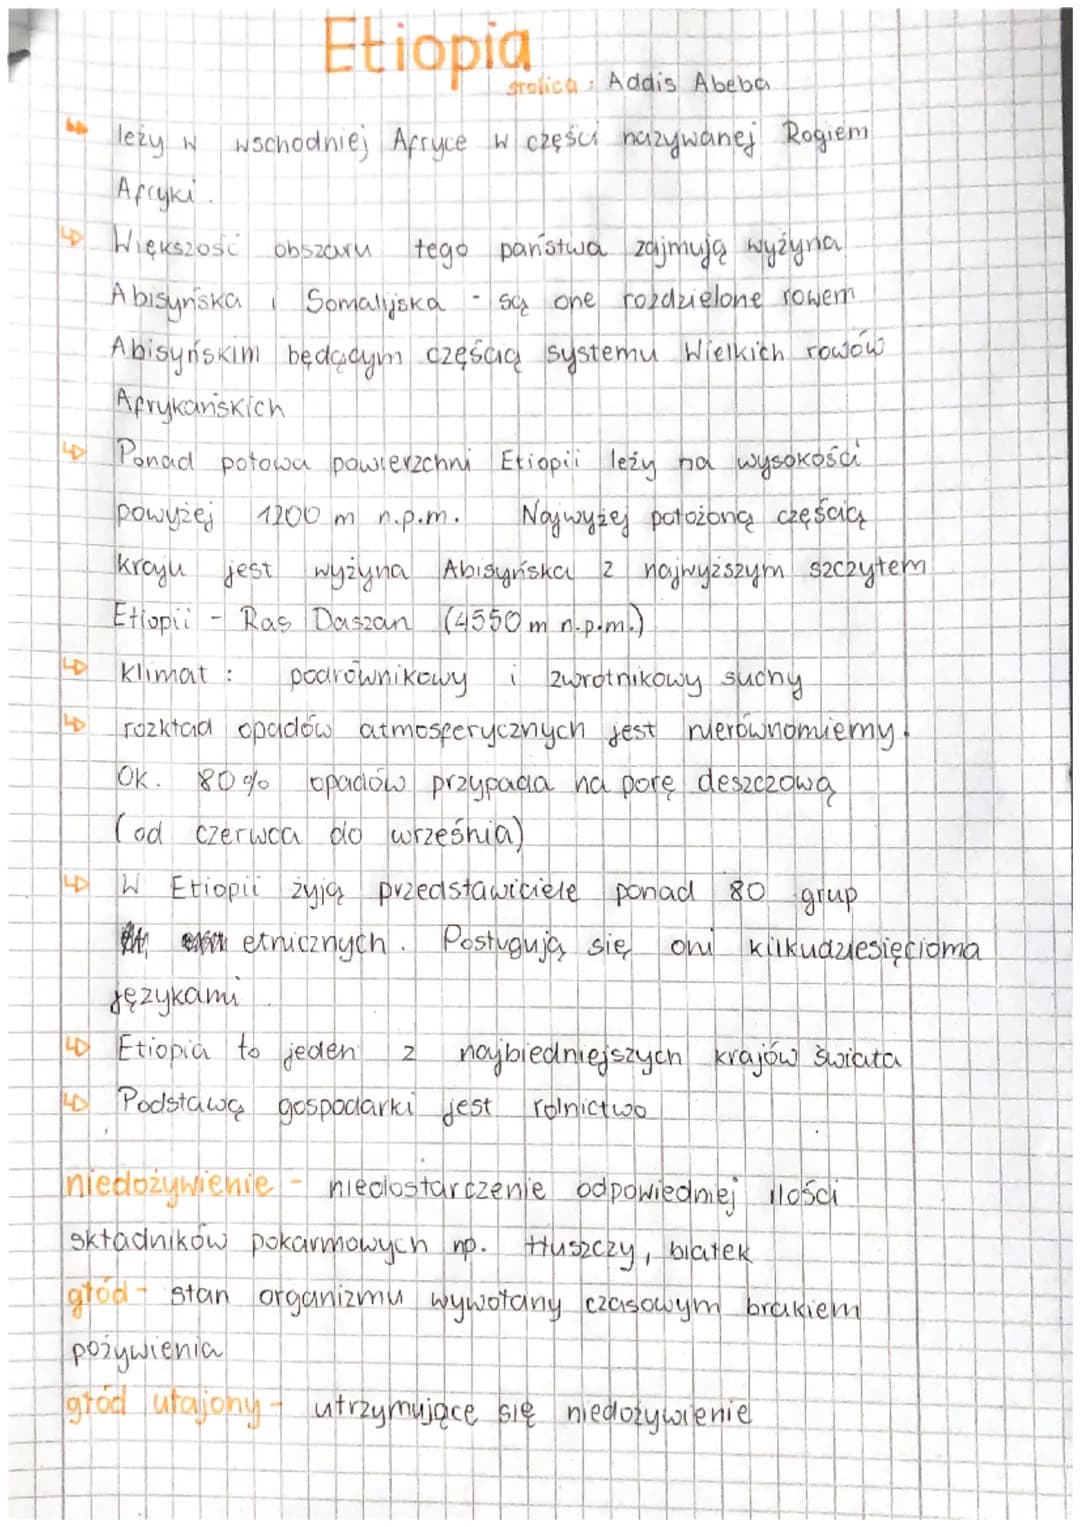 Etiopia
stolica: Addis Abeba
leży w wschodniej Afryce w części nazywanej Rogiem
Afryki.
Większość obszaru tego państwa zajmują wyżyna
Abisyńska i Somalijska - są one rozdzielone rowem
Abisyńskim będącym częścią systemu Wielkich rowów
Afrykańskich
Ponad połowa powierzchni Etiopii leży na wysokości
powyżej 1200 m n.p.m. Najwyżej położoną częścią
kraju jest wyżyna Abisyńska z najwyższym szczytem
Etiopii - Ras Daszan (4550 m n.p.m.)
klimat: podrównikowy i zwrotnikowy suchy
rozkład opadów atmosferycznych jest nierównomierny.
Ok. 80% opadów przypada na porę deszczową
(od czerwca do września)
W Etiopii żyją przedstawiciele ponad 80 grup
etnicznych. Posługują się oni kilkudziesięcioma
językami
Etiopia to jeden z najbiedniejszych krajów świata
Podstawą gospodarki jest rolnictwo
niedożywienie - niedostarczenie odpowiedniej ilości
składników pokarmowych np. tłuszczy, białek
głód - stan organizmu wywołany czasowym brakiem
pożywienia
głód utajony - utrzymujące się niedożywienie